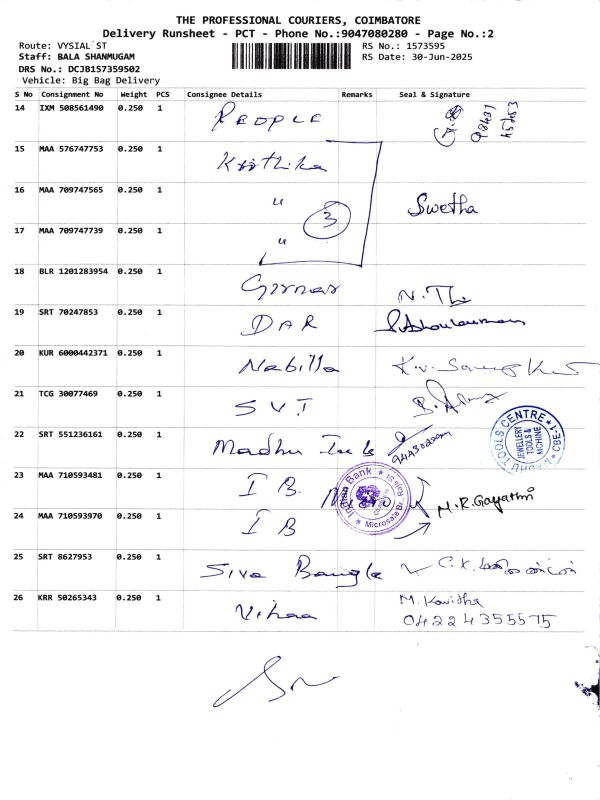 THE PROFESSIONAL COURIERS, COIMBATORE
Delivery Runsheet - PCT - Phone No.:9047080280 - Page No.:2
Route: VYSIAL ST
Staff: BALA SHANMUGAM
DRS No.: DCJB157359502
Vehicle: Big Bag Delivery
RS No.: 1573595
RS Date: 30-Jun-2025
S No Consignment No Weight PCS Consignee Details Remarks Seal & Signature
14 IXM 508561490 0.250 1 PEOPLE
15 MAA 576747753 1 Krithika
16 MAA 709747565 0.250 1 " 3 Swetha
17 MAA 709747739 0.250 1 "
18 BLR 1201283954 0.250 1 Girnar
19 SRT 70247853 0.250 1 DAR
20 KUR 6000442371 0.250 1 Nabilla
21 TCG 30077469 0.250 1 SVT
22 SRT 551236161 0.250 1 Madhu
TOOLS CENTRE
JEWELLERY TOOLS & MCHINE
MADHU
CBE-1
23 MAA 710593481 0.250 1 I B
Indian Bank
Microsate Br.
24 MAA 710593970 0.250 1 I B M.R. Gayathri
25 SRT 8627953 0.250 1 Siva Bangle C.K.
26 KRR 50265343 0.250 1 Vihaa M. Kavitha
04224355575